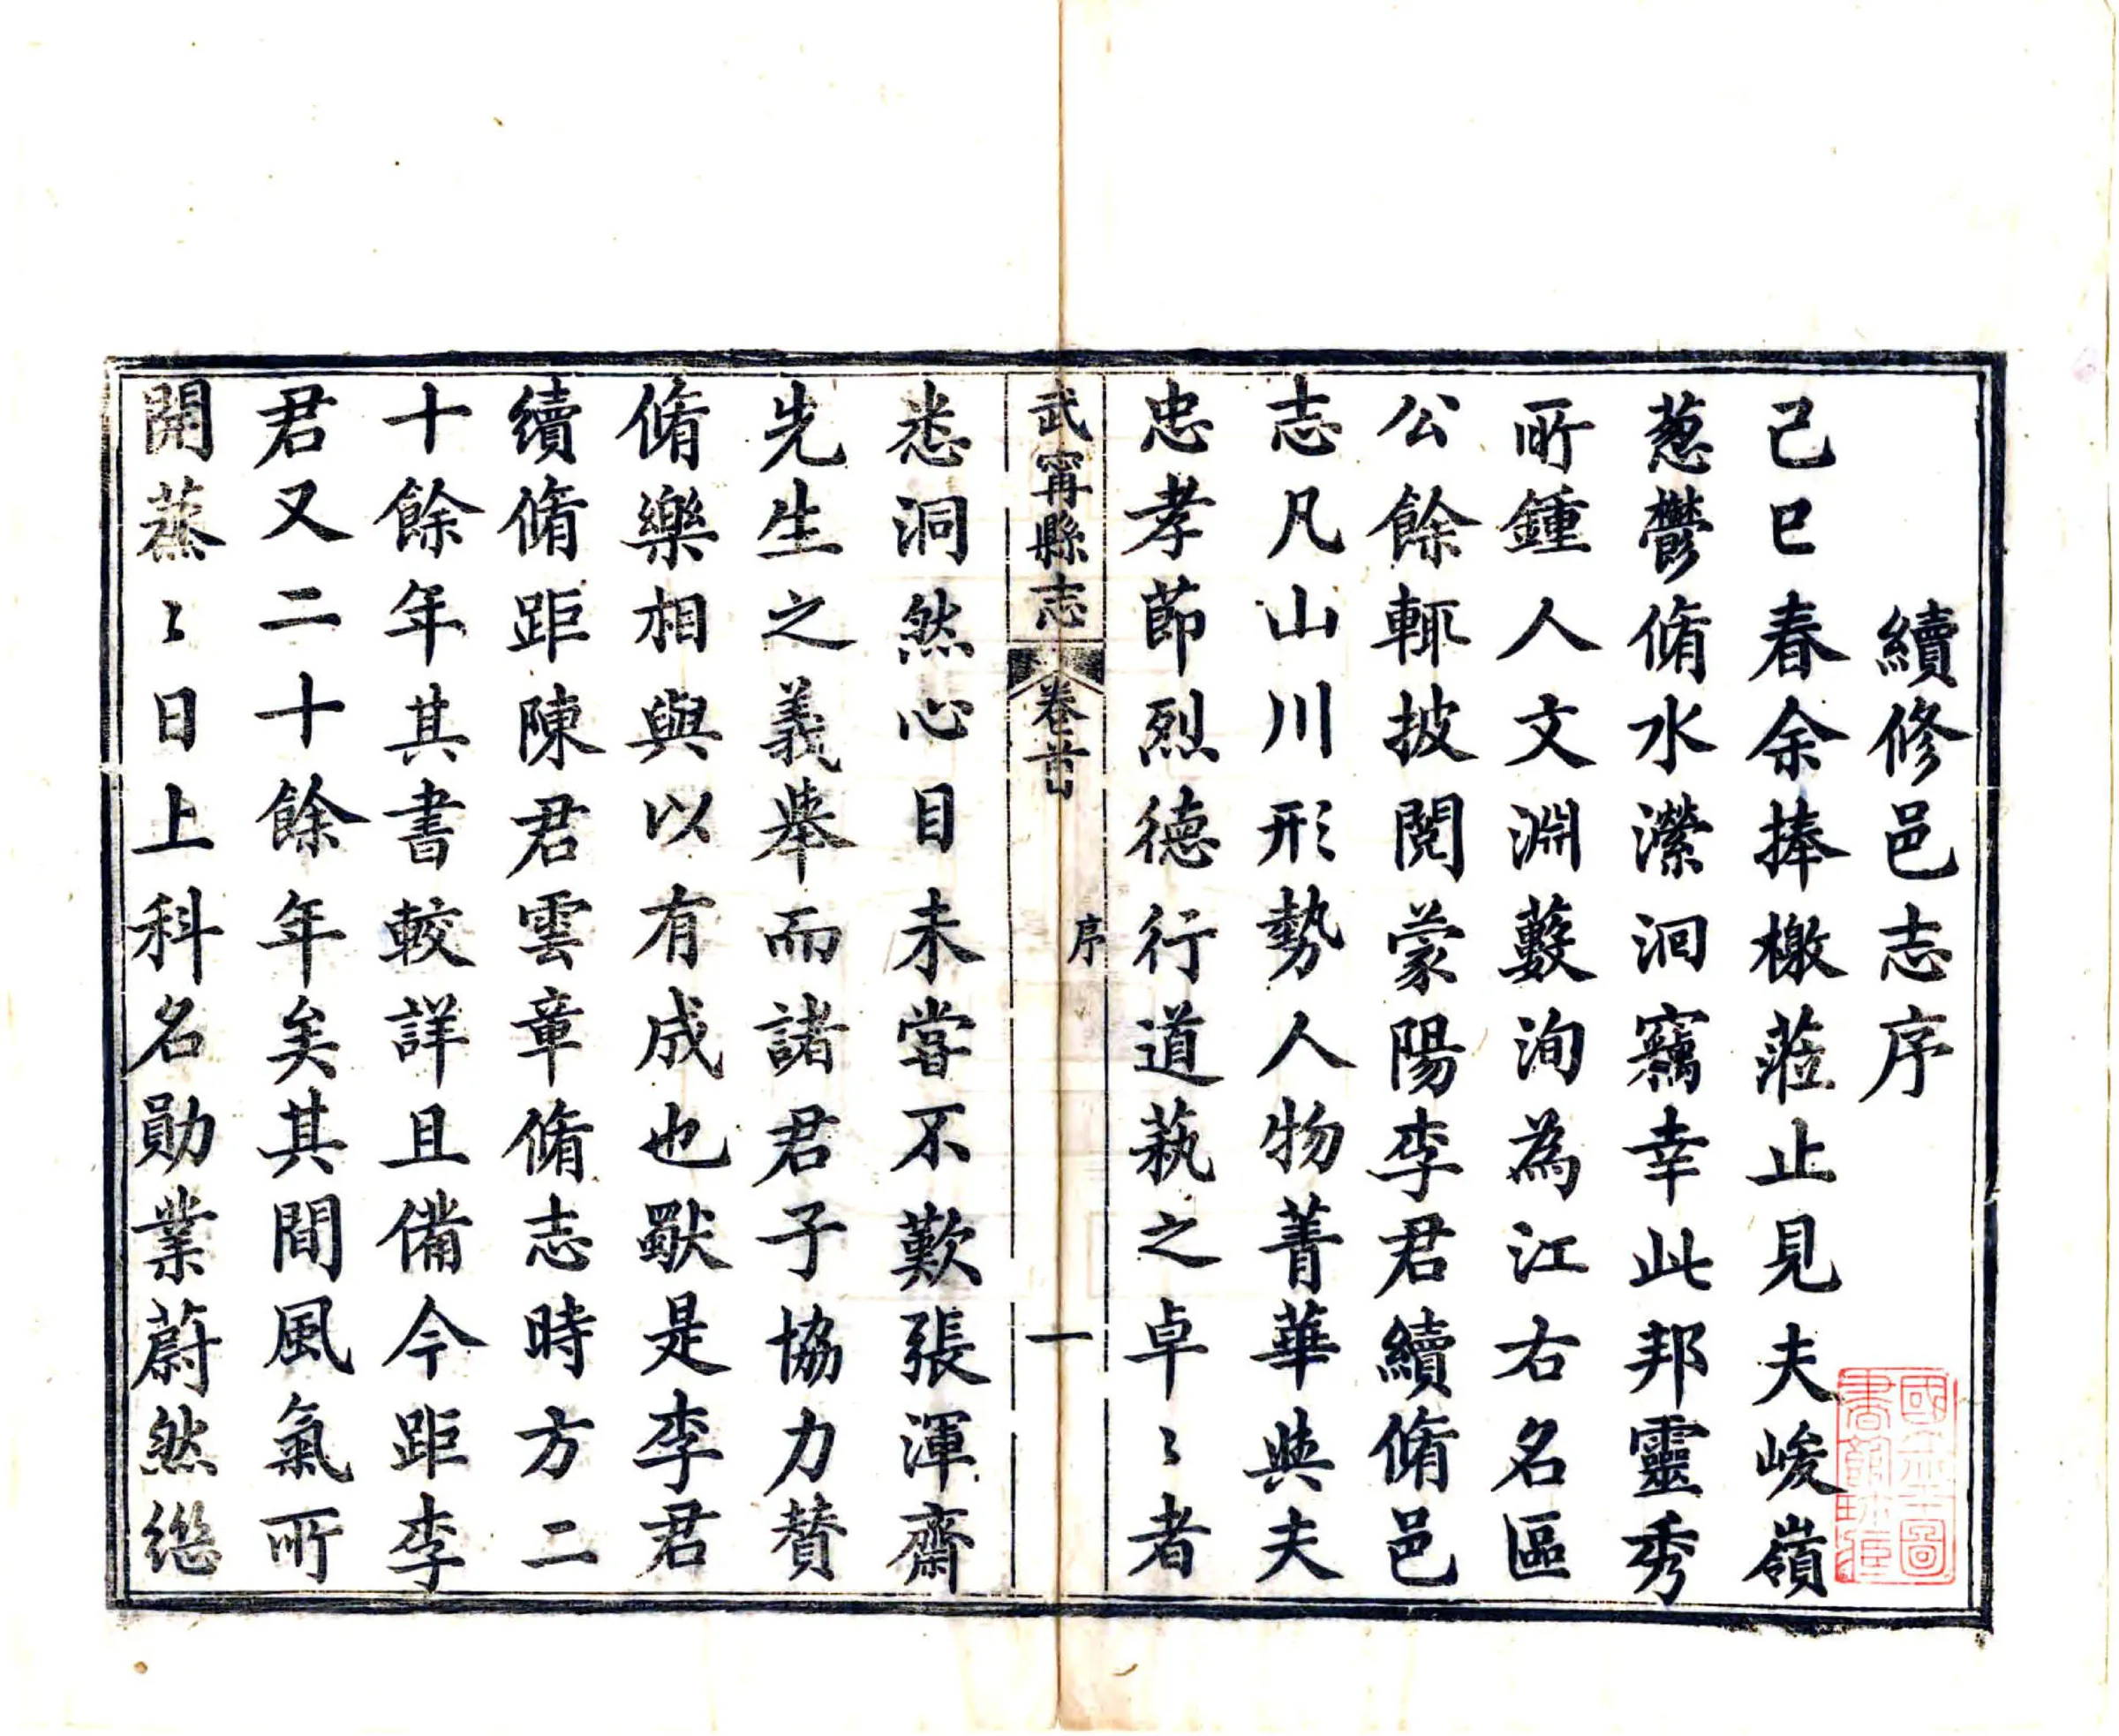 續修邑志序
己巳春余捧檄蒞止見夫峻嶺
蔥鬱脩水瀠洄竊幸此邦靈秀
所鍾人文淵藪洵為江右名區
公餘輒披閱蒙陽李君續脩邑
志凡山川形勢人物菁華與夫
忠孝節烈德行道藝之卓〻者
武甯縣志 卷首 序 一
悉洞然心目未嘗不歎張渾齋
先生之義舉而諸君子協力贊
脩樂相與以有成也猷是李君
續脩距陳君雲章脩志時方二
十餘年其書較詳且備今距李
君又二十餘年矣其間風氣所
開蒸〻日上科名勛業蔚然繼
國立北平圖書館珍藏